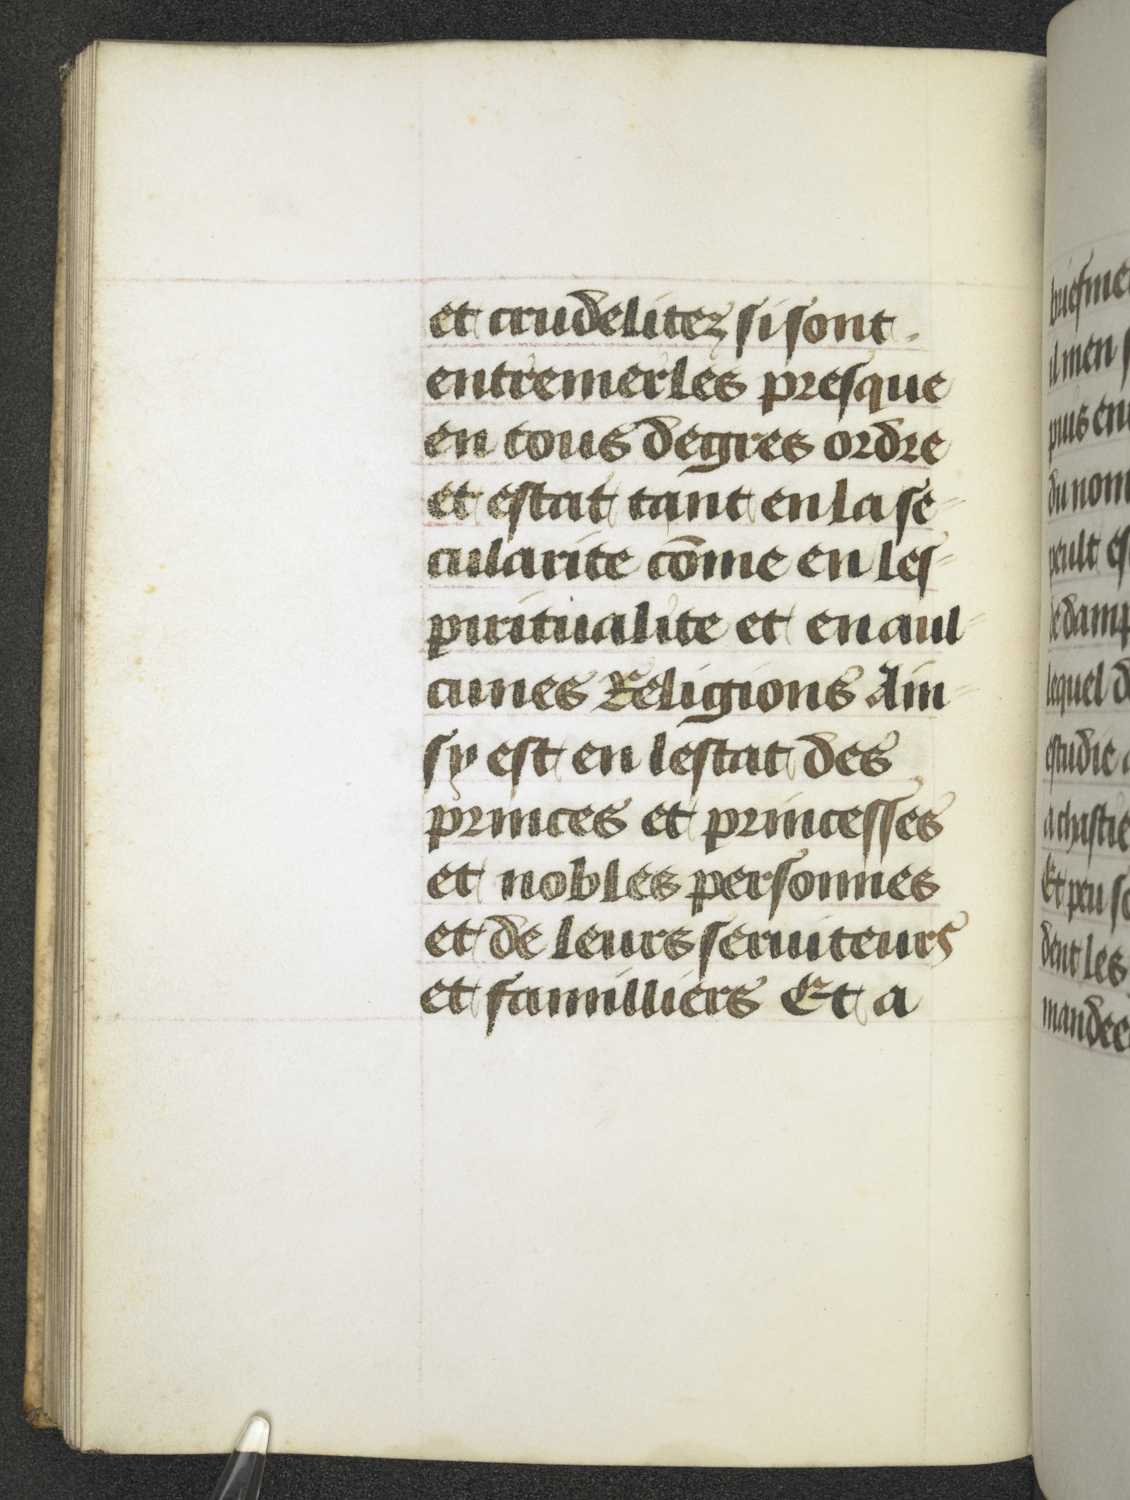 et crudelitez si sont .
entremerles presque
en tous degres ordre
et estat tant en la se-
cularite cōme en les-
piritualite et en aul-
cunes Religions Ain-
sy est en lestat des
princes et princesses
et nobles personnes
et de leurs seruiteurs
et familliers Et a
briefme
il men s
puis en
du nom
peult es
de damp
lequel d
estudie a
a chastie
Et peu so
dent les
mandee